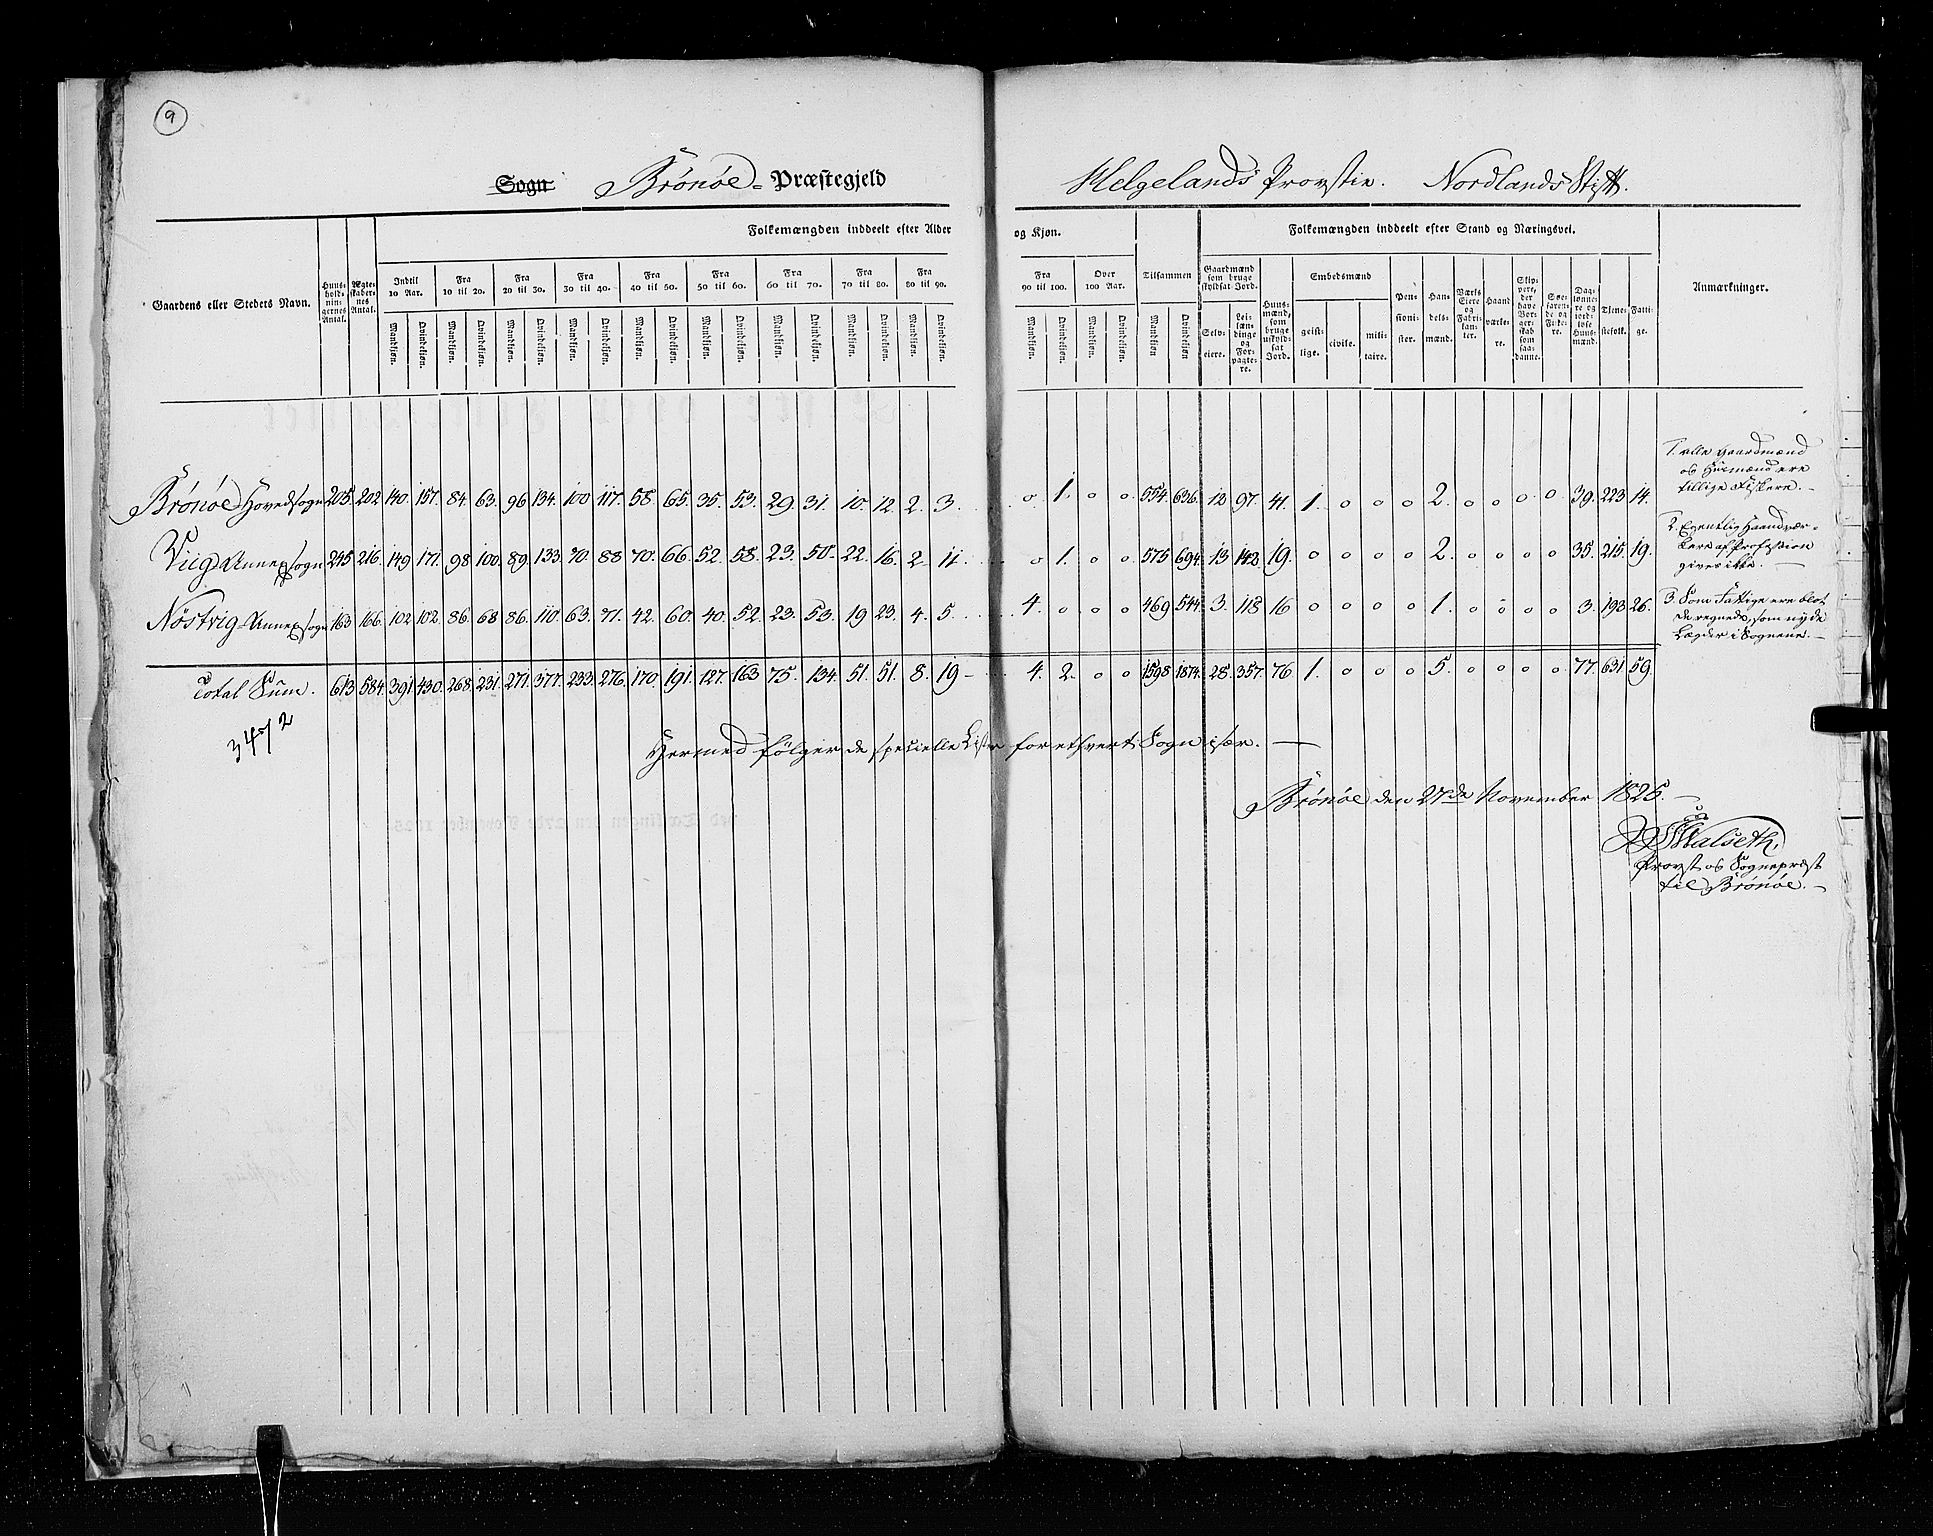 9
Sogn Brönöe - Præstegjeld Helgelands Provstie. Nordlands Stift.
Folkemængden inddeelt efter Alder og Kjøn. Folkemængden inddeelt efter Stand og Næringsvei.
Gaardens eller Stedets Navn. Huusholdningernes Antal. Ægteskabernes Antal. Indtil 10 Aar. Fra 10 til 20. Fra 20 til 30. Fra 30 til 40. Fra 40 til 50. Fra 50 til 60. Fra 60 til 70. Fra 70 til 80. Fra 80 til 90. Fra 90 til 100. Over 100 Aar. Tilsammen Gaardmænd som bruge skyldsat Jord. Huusmænd, som bruge uskyldsat Jord. Embedsmænd Pensionister. Handelsmænd. Værks Eiere og Fabrikanter. Haandværkere. Skippere, der have Borgerskab som saadanne. Søefarende og Fiskere. Daglønnere og jordløse Huusmænd. Tjenestefolk. Fattige. Anmærkninger.
Mandkjøn. Qvindekjøn. Mandkjøn. Qvindekjøn. Mandkjøn. Qvindekjøn. Mandkjøn. Qvindekjøn. Mandkjøn. Qvindekjøn. Mandkjøn. Qvindekjøn. Mandkjøn. Qvindekjøn. Mandkjøn. Qvindekjøn. Mandkjøn. Qvindekjøn. Mandkjøn. Qvindekjøn. Mandkjøn. Qvindekjøn. Mandkjøn Qvindekjøn Selveiere. Leilændinge og Forpagtere. geistlige. civile. militaire.
Brönöe Hovedsogn 205. 202 140. 157. 84. 63. 96 134. 100 117. 58. 65. 35. 53. 29. 31. 10. 12. 2. 3. 0. 1. 0 0. 554. 636. 12 97. 41. 1. 0 0 0 2. 0 0 0 0. 39. 223 14.
Viig Annexsogn 245 216. 149 171. 98 100. 89. 133. 70. 88 70. 66. 52. 58. 23. 50. 22. 16. 2. 11. 0 1. 0 0 575 694. 13 142. 19. 0 0 0 0 2. 0 0 0 0 35. 215. 19.
Nöstvig Annexsogn 163 166. 102 102. 86. 68 86. 110. 63. 71. 42. 60. 40. 52. 23. 53. 19 23. 4. 5. 4. 0 0 0 469 544. 3. 118 16 0 0 0 0 1. 0 0 0 0 3. 193 26.
Total Sum. 613 584. 391 430. 268. 231. 271. 377. 233. 276. 170. 191. 127. 163 75. 134. 51. 51. 8. 19 4. 2. 0 0 1598 1874. 28. 357. 76 1. 0 0 0 5. 0 0 0 0 77. 631 59.
1. Alle Gaardmænd
og Husmænd ere
tillige Fiskere.
2. Egentlig Haandvær-
kere af Profession
gives ikke.
3. Som Fattige ere blot
de regnede, som nyde
Lægder i Sognene.
3472
Hermed følger de specielle Lister for ethvert Sogn især.
Brönöe den 27de November 1825.
Walseth,
Provst og Sognepræst
til Brönöe.